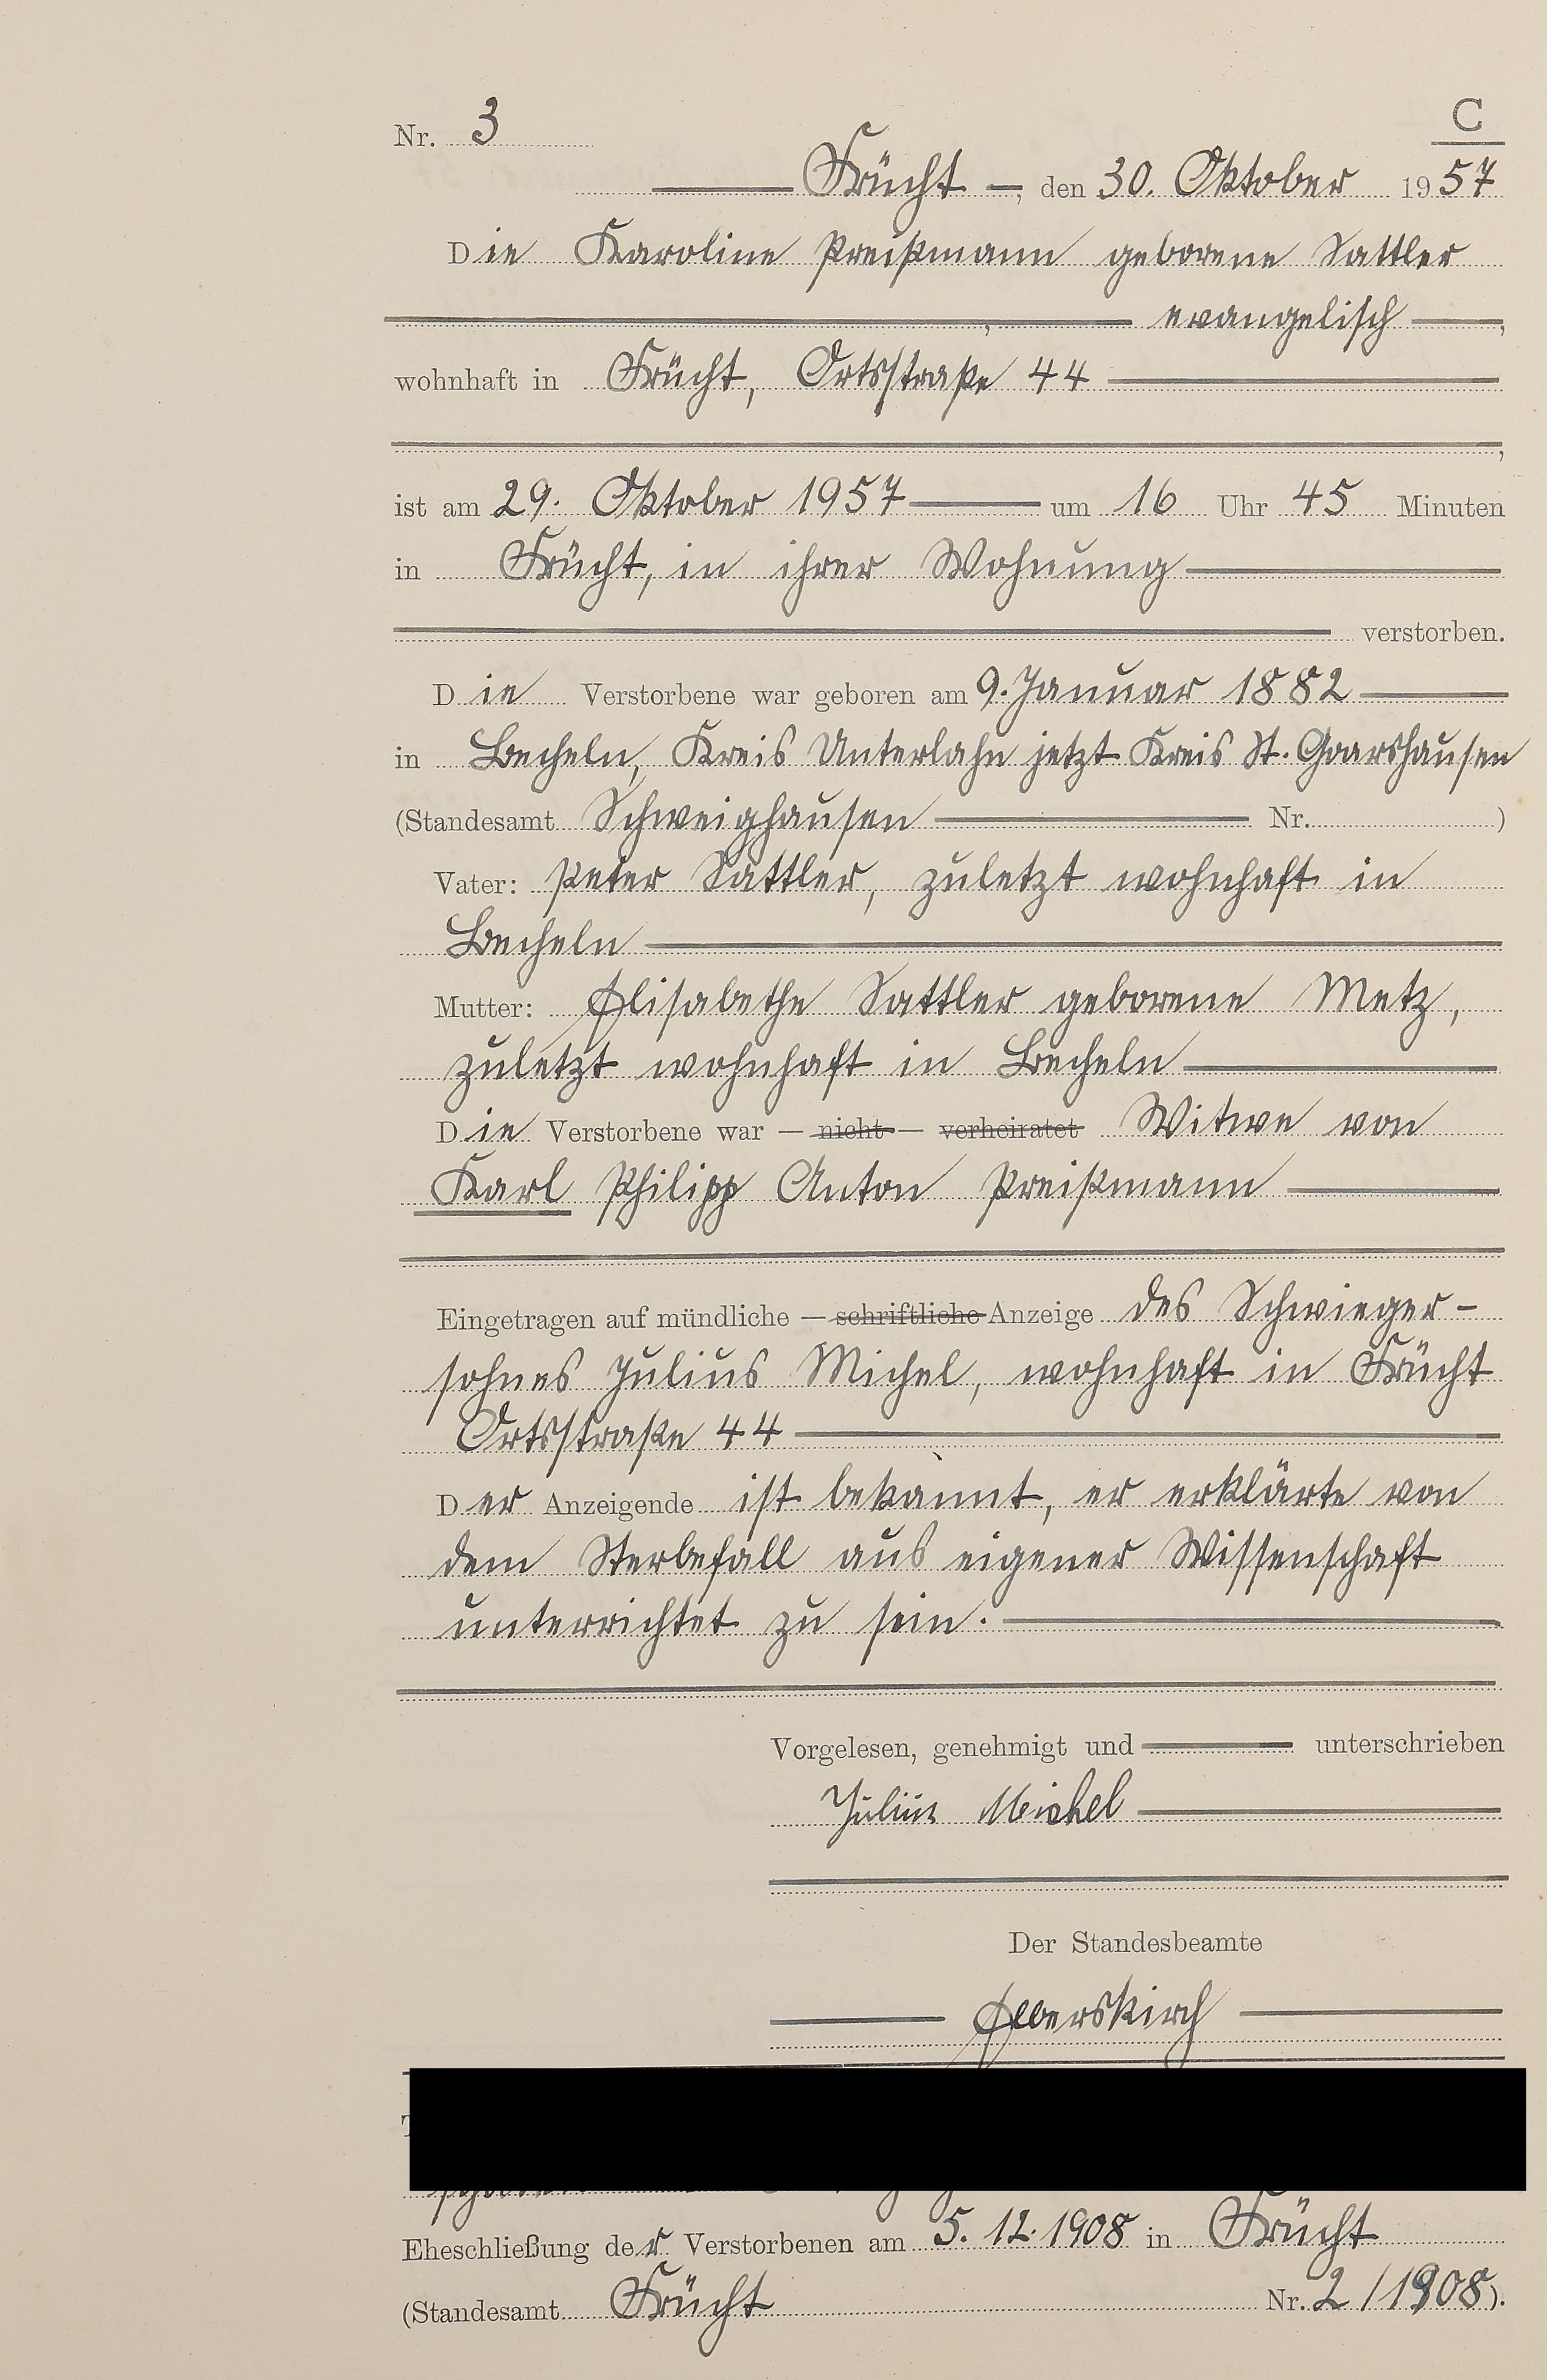 C
Nr. 3
Frücht, den 30. Oktober 1957
Die Karoline Preißmann geborene Sattler
, evangelisch,
wohnhaft in Frücht, Ortsstraße 44
,
ist am 29. Oktober 1957 um 16 Uhr 45 Minuten
in Frücht, in ihrer Wohnung
verstorben.
Die Verstorbene war geboren am 9. Januar 1882
in Becheln, Kreis Unterlahn jetzt Kreis St. Goarshausen
(Standesamt Schweighausen Nr. )
Vater: Peter Sattler, zuletzt wohnhaft in
Becheln
Mutter: Elisabethe Sattler geborene Metz,
zuletzt wohnhaft in Becheln
Die Verstorbene war — nicht — verheiratet Witwe von
Karl Philipp Anton Preißmann
Eingetragen auf mündliche — schriftliche Anzeige des Schwieger-
sohnes Julius Michel, wohnhaft in Frücht
Ortsstraße 44
Der Anzeigende ist bekannt, er erklärte von
dem Sterbefall aus eigener Wissenschaft
unterrichtet zu sein.
Vorgelesen, genehmigt und unterschrieben
Julius Michel
Der Standesbeamte
Elberskirch
Eheschließung der Verstorbenen am 5. 12. 1908 in Frücht
(Standesamt Frücht Nr. 2/1908).